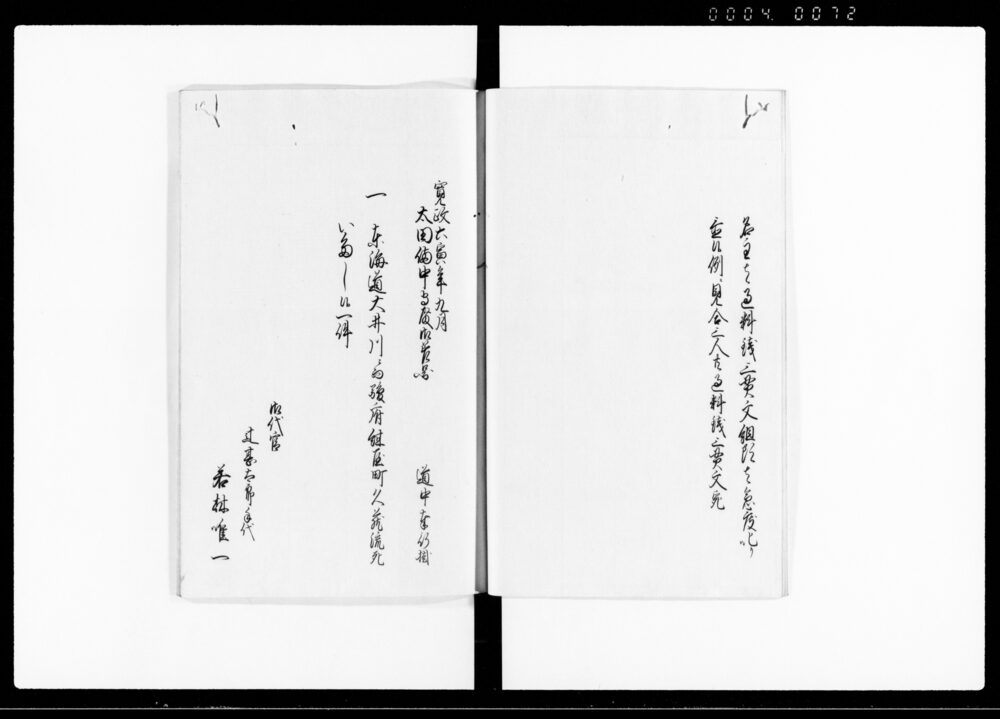 0004. 0072
名主は過料銭三貫文組頭は急度叱り
並之例ニ見合三人共過料銭三貫文宛
寛政六寅年九月
太田備中守殿御差図
道中奉行掛
一 東海道大井川ニ而駿府紺屋町久蔵流死
いたし候一件
御代官
辻甚太郎手代
若林唯一